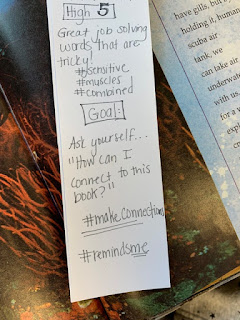 High 5
Great job solving
words that are
tricky!
#sensitive
#muscles
#combined
Goal:
Ask yourself...
"How can I
connect to this
book?"
#makeconnections
#remindsme
have gills, but
holding it, human
scuba air
tank, we
can take air
underwater
with us
for a